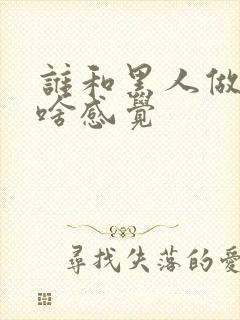 誰和黑人做
啥感覺
尋找失落的愛